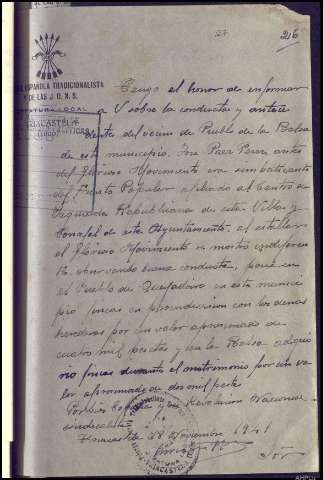 27
26
ESPAÑOLA TRADICIONALISTA
Y DE LAS J. O. N. S.
JEFATURA LOCAL
TRIACASTELA
POLITICAS
Tengo el honor de informar
a V sobre la conducta y antece
dente del vecino de Pueblo de la Balsa
de este municipio, José Paez Perez, antes
del Glorioso Movimiento era simpatizante
del Frente Popular afiliado al Centro de
Izquierda Republicana de esta Villa y
Conséjal de este Ayuntamiento, al estallar
el Glorioso Movimiento se mostró indiferen
te observando buena conducta, posee en
el Pueblo de en este munici
pio fincas en proindivision con los demas
herederos por un valor aproximado de
cuatro mil pesetas y en la Balsa adqui
rio fincas durante el matrimonio por un va
lor aproximado de dos mil pesetas
Por Dios España y su Revolucion Nacional
sindicalista
Triacastela 28 Noviembre 1941
TRIACASTELA
Sor
AHPLU